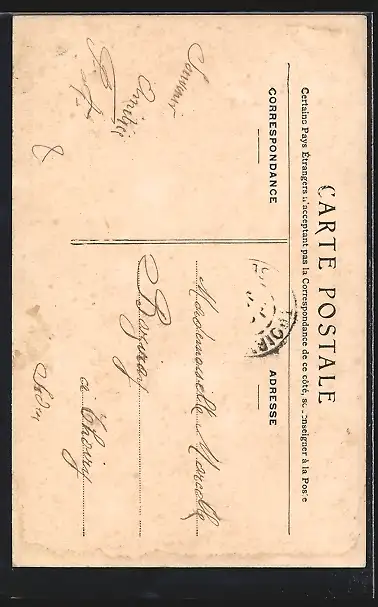 CARTE POSTALE
Certains Pays Étrangers n'acceptant pas la Correspondance de ce côté, se renseigner à la Poste
CORRESPONDANCE
ADRESSE
Souvenir
Amitiés
Mademoiselle Marcelle
à Thoiry